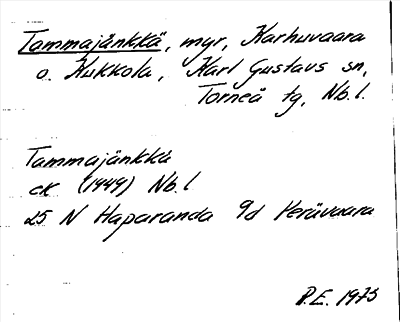 Tammajänkkä, myr, Karhuvaara
o. Kukkola, Karl Gustavs sn,
Torneå tg, Nb.l.
Tammajänkkä
ek (1949) Nb.l
25 N Haparanda 9d Perävaara
P.E. 1975